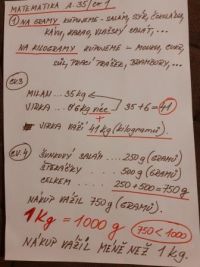 MATEMATIKA A 35/CV 1
① NA GRAMY KUPUJEME - SALÁM, SÝR, ČOKOLÁDU,
KÁVU, KAKAO, VLAŠSKÝ SALÁT, ...
NA KILOGRAMY KUPUJEME - MOUKU, CUKR,
SŮL, PRACÍ PRÁŠEK, BRAMBORY, ...
CV.3
MILAN ... 35 kg
MIRKA ... O 6 kg více 35 + 6 = 41
MIRKA VÁŽÍ 41 kg (kilogramů)
CV. 4
ŠUNKOVÝ SALÁM ... 250 g (GRAMŮ)
TĚSTOVINY ... 500 g (GRAMŮ)
CELKEM 250 + 500 = 750 g
NÁKUP VÁŽIL 750 g (GRAMŮ).
1 kg = 1000 g 750 < 1000
NÁKUP VÁŽIL MÉNĚ NEŽ 1 kg.